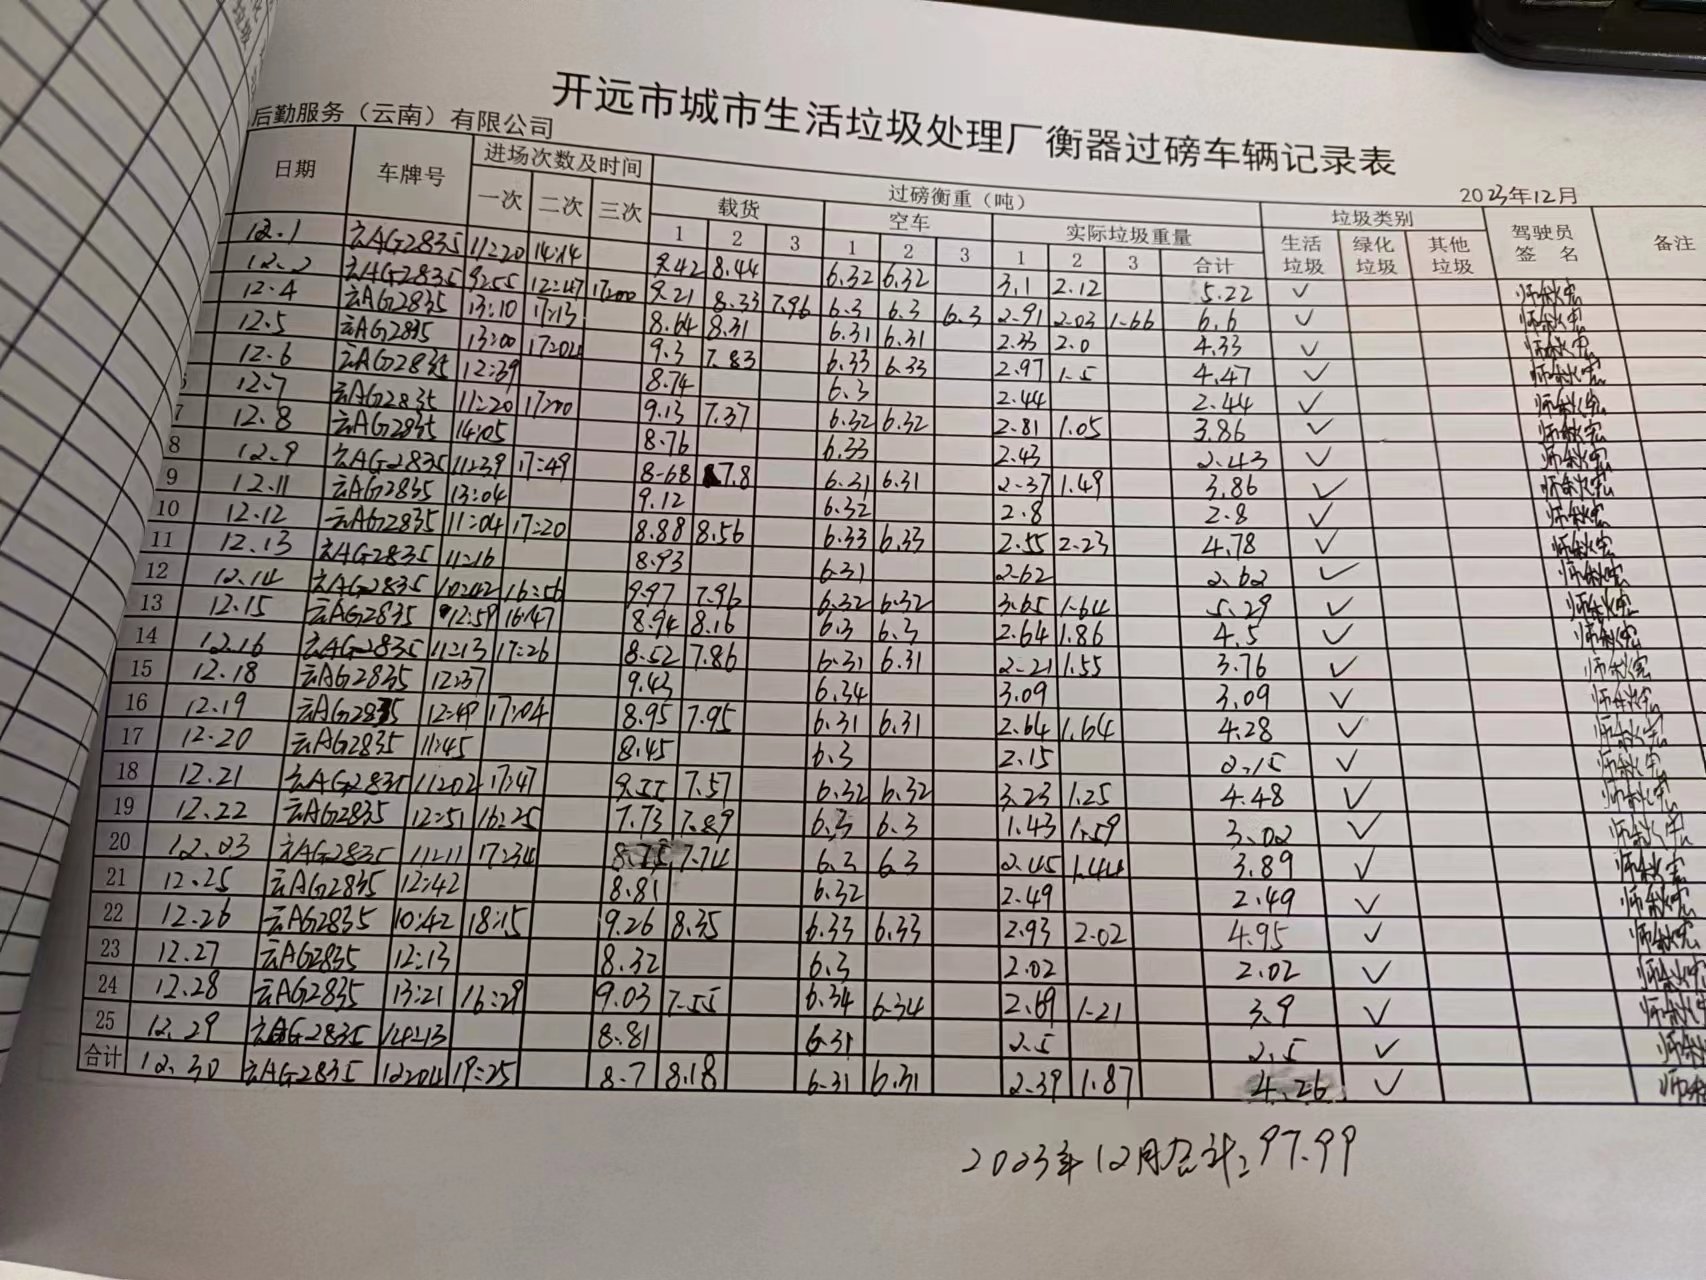 开远市城市生活垃圾处理厂衡器过磅车辆记录表
后勤服务（云南）有限公司 2023年12月
日期 车牌号 进场次数及时间 过磅衡重（吨） 垃圾类别 驾驶员签名 备注
一次 二次 三次 载货 空车 实际垃圾重量 生活垃圾 绿化垃圾 其他垃圾
1 2 3 1 2 3 1 2 3 合计
12.1 云AG2835 11:20 14:14 9.42 8.44 6.32 6.32 3.1 2.12 5.22 ✓
12.2 云AG2835 9:55 12:47 17:00 9.21 8.33 7.96 6.3 6.3 6.3 2.91 2.03 1.66 6.6 ✓
12.4 云AG2835 13:10 17:13 8.64 8.31 6.31 6.31 2.33 2.0 4.33 ✓
12.5 云AG2835 13:00 17:02 9.3 7.83 6.33 6.33 2.97 1.5 4.47 ✓
12.6 云AG2835 12:39 8.74 6.3 2.44 2.44 ✓
12.7 云AG2835 11:20 17:00 9.13 7.37 6.32 6.32 2.81 1.05 3.86 ✓
7 12.8 云AG2835 14:05 8.76 6.33 2.43 2.43 ✓
8 12.9 云AG2835 11:39 17:49 8.68 7.8 6.31 6.31 2.37 1.49 3.86 ✓
9 12.11 云AG2835 13:04 9.12 6.32 2.8 2.8 ✓
10 12.12 云AG2835 11:04 17:20 8.88 8.56 6.33 6.33 2.55 2.23 4.78 ✓
11 12.13 云AG2835 11:16 8.93 6.31 2.62 2.62 ✓
12 12.14 云AG2835 10:42 16:56 9.97 7.96 6.32 6.32 3.65 1.64 5.29 ✓
13 12.15 云AG2835 12:59 16:47 8.94 8.16 6.3 6.3 2.64 1.86 4.5 ✓
14 12.16 云AG2835 11:13 17:26 8.52 7.86 6.31 6.31 2.21 1.55 3.76 ✓
15 12.18 云AG2835 12:37 9.43 6.34 3.09 3.09 ✓
16 12.19 云AG2835 12:49 17:04 8.95 7.95 6.31 6.31 2.64 1.64 4.28 ✓
17 12.20 云AG2835 11:45 8.45 6.3 2.15 2.15 ✓
18 12.21 云AG2835 11:02 17:47 9.55 7.57 6.32 6.32 3.23 1.25 4.48 ✓
19 12.22 云AG2835 12:51 16:25 7.73 7.89 6.3 6.3 1.43 1.59 3.02 ✓
20 12.23 云AG2835 11:11 17:34 8.75 7.74 6.3 6.3 2.45 1.44 3.89 ✓
21 12.25 云AG2835 12:42 8.81 6.32 2.49 2.49 ✓
22 12.26 云AG2835 10:42 18:15 9.26 8.35 6.33 6.33 2.93 2.02 4.95 ✓
23 12.27 云AG2835 12:13 8.32 6.3 2.02 2.02 ✓
24 12.28 云AG2835 13:21 16:29 9.03 7.55 6.34 6.34 2.69 1.21 3.9 ✓
25 12.29 云AG2835 14:13 8.81 6.31 2.5 2.5 ✓
合计 12.30 云AG2835 12:04 19:25 8.7 8.18 6.31 6.31 2.39 1.87 4.26 ✓
2023年12月合计:97.99